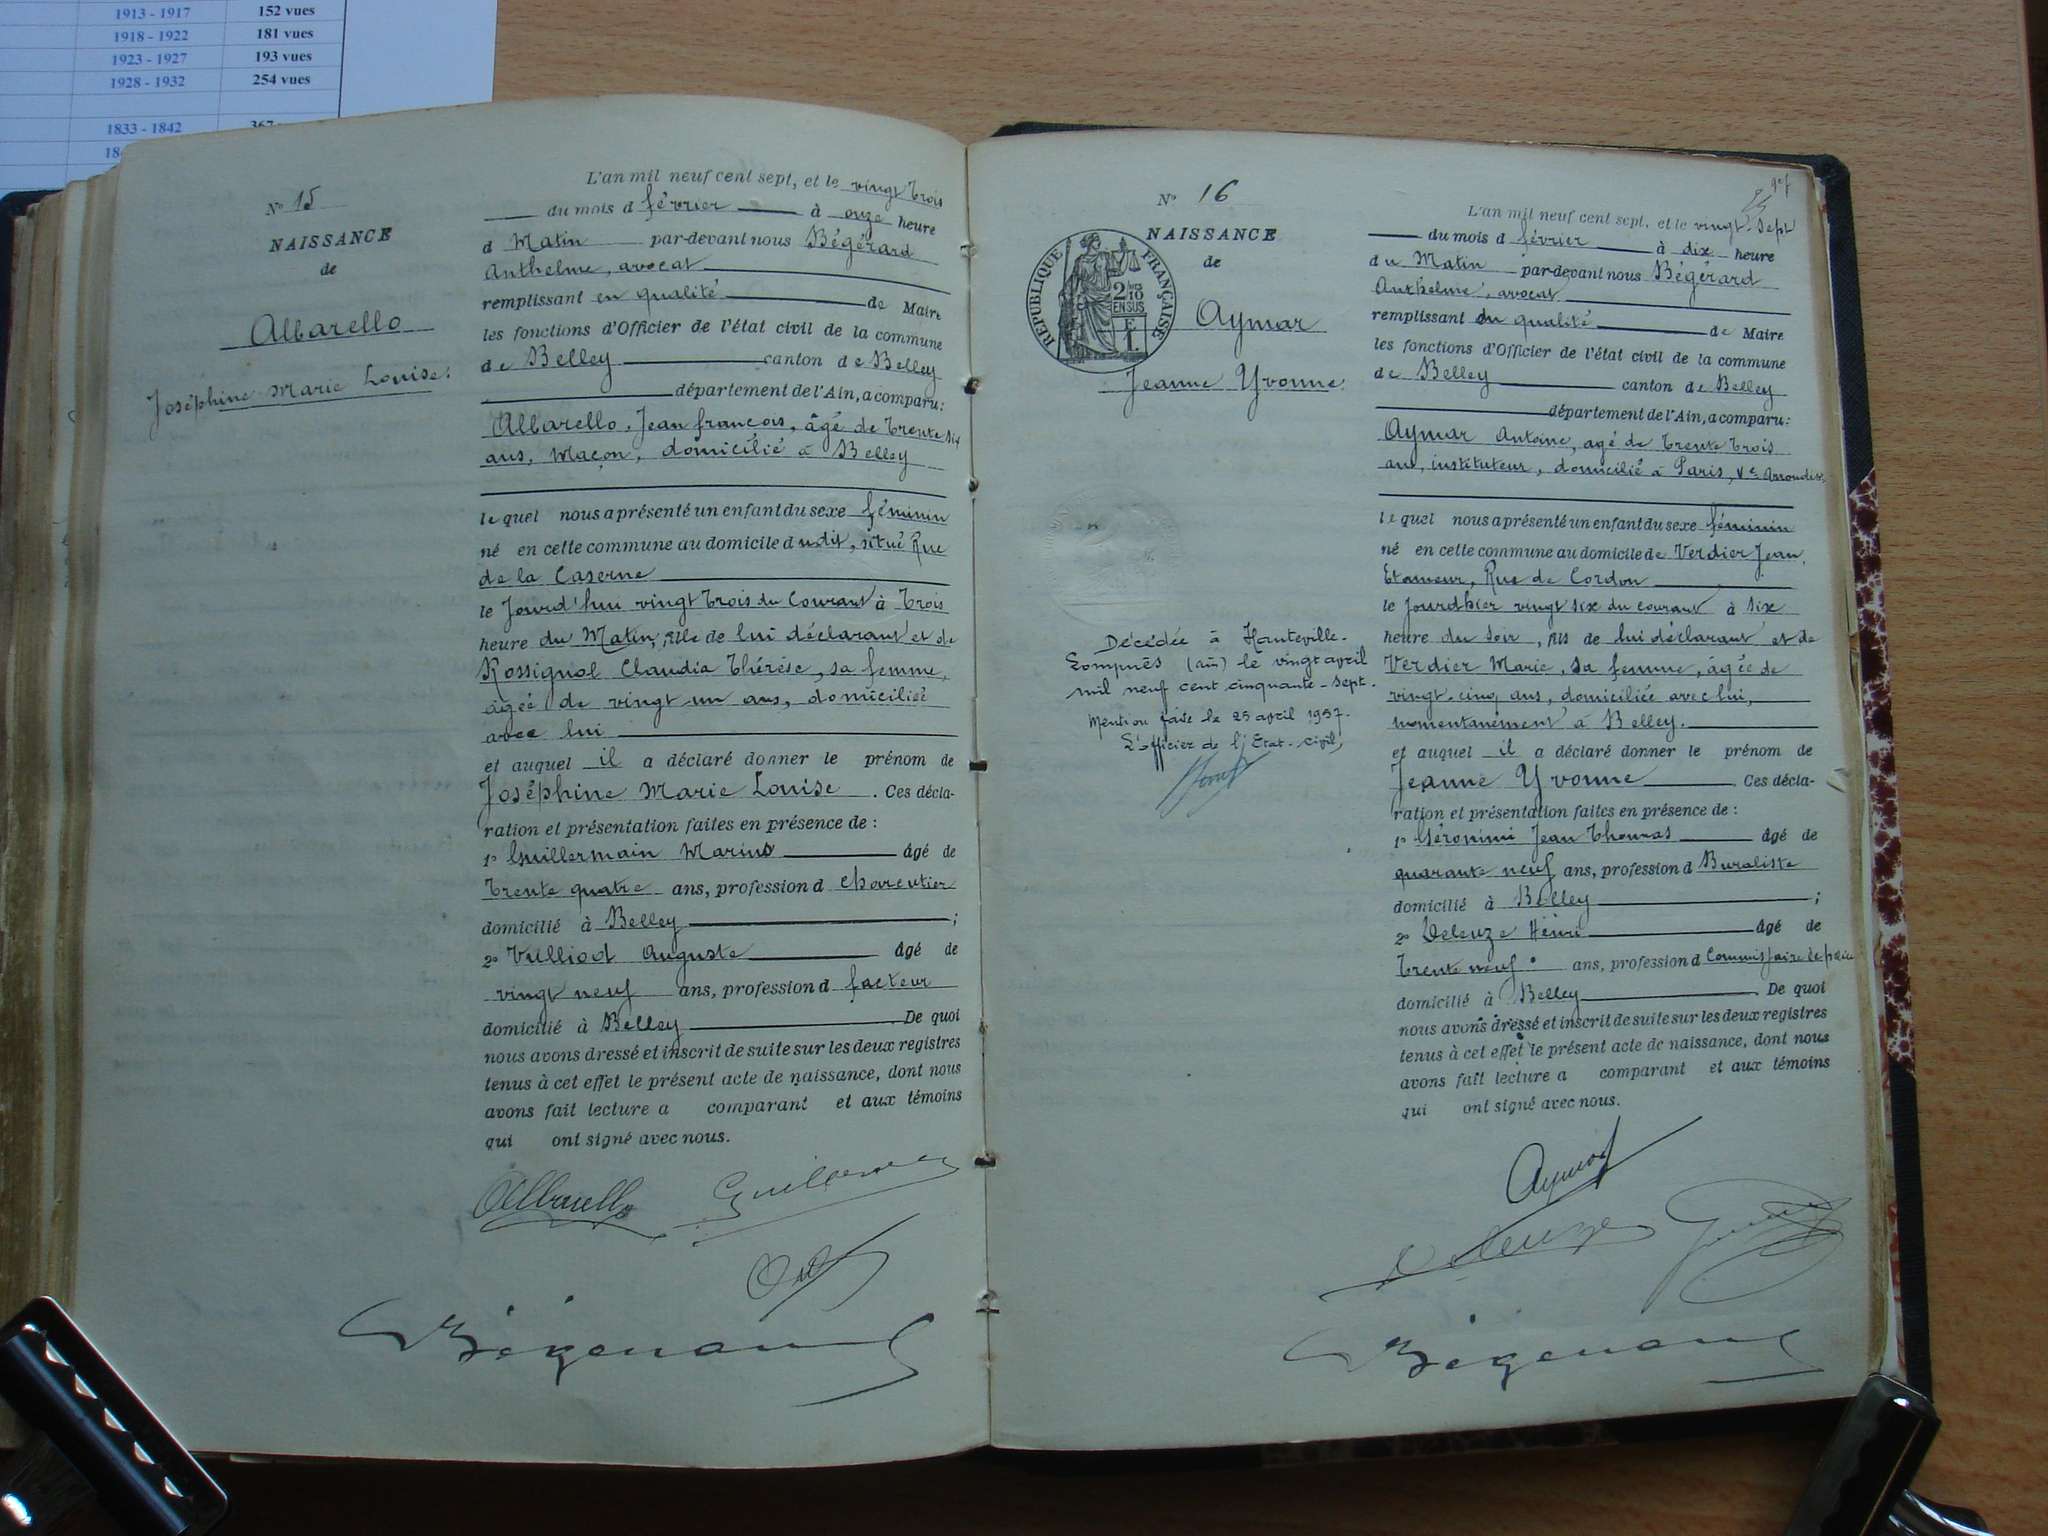 1913 - 1917 152 vues
1918 - 1922 181 vues
1923 - 1927 193 vues
1928 - 1932 254 vues
1833 - 1842 367
184
N° 15
NAISSANCE
de
Albarello
Joséphine Marie Louise.
L'an mil neuf cent sept, et le vingt trois
du mois d février à onze heure
d Matin par-devant nous Bégérard
Anthelme, avocat
remplissant en qualité de Maire
les fonctions d'Officier de l'état civil de la commune
de Belley canton de Belley
département de l'Ain, a comparu:
Albarello, Jean françois, âgé de trente six
ans, Maçon, domicilié à Belley
lequel nous a présenté un enfant du sexe féminin
né en cette commune au domicile dudit, situé Rue
de la Caserne
le Jourd'hui vingt trois du Courant à trois
heure du Matin, fille de lui déclarant et de
Rossignol Claudia Thérèse, sa femme,
âgée de vingt un ans, domiciliée
avec lui
et auquel il a déclaré donner le prénom de
Joséphine Marie Louise. Ces décla-
ration et présentation faites en présence de :
1° Guillermain Marius âgé de
trente quatre ans, profession d charcutier
domicilié à Belley ;
2° Vulliod Auguste âgé de
vingt neuf ans, profession d facteur
domicilié à Belley De quoi
nous avons dressé et inscrit de suite sur les deux registres
tenus à cet effet le présent acte de naissance, dont nous
avons fait lecture a comparant et aux témoins
qui ont signé avec nous.
Albarello Guillermain
Bégérard
N° 16
NAISSANCE
de
REPUBLIQUE FRANÇAISE
2/10
EN SUS
Aymar
Jeanne Yvonne
Décédée à Hauteville-
Lompnès (ain) le vingt avril
mil neuf cent cinquante-sept.
Mention faite le 25 avril 1957.
L'officier de l'Etat-civil,
L'an mil neuf cent sept, et le vingt-sept
du mois d février à dix heure
du Matin par-devant nous Bégérard
Anthelme, avocat
remplissant en qualité de Maire
les fonctions d'Officier de l'état civil de la commune
de Belley canton de Belley
département de l'Ain, a comparu:
Aymar Antoine, agé de trente trois
ans, instituteur, domicilié à Paris, Ve Arrondis.
lequel nous a présenté un enfant du sexe féminin
né en cette commune au domicile de Verdier Jean,
Etameur, Rue de Cordon
le jourdhier vingt six du courant à six
heure du soir, fils de lui déclarant et de
Verdier Marie, sa femme, âgée de
vingt-cinq ans, domiciliée avec lui,
momentanément à Belley.
et auquel il a déclaré donner le prénom de
Jeanne Yvonne Ces décla-
ration et présentation faites en présence de :
1° Géronimi Jean Thomas âgé de
quarante neuf ans, profession d Buraliste
domicilié à Belley ;
2° Deleuze Hénri âgé de
trente neuf ans, profession d Commissaire de police
domicilié à Belley. De quoi
nous avons dressé et inscrit de suite sur les deux registres
tenus à cet effet le présent acte de naissance, dont nous
avons fait lecture a comparant et aux témoins
qui ont signé avec nous.
Aymar
Deleuze
Bégérard